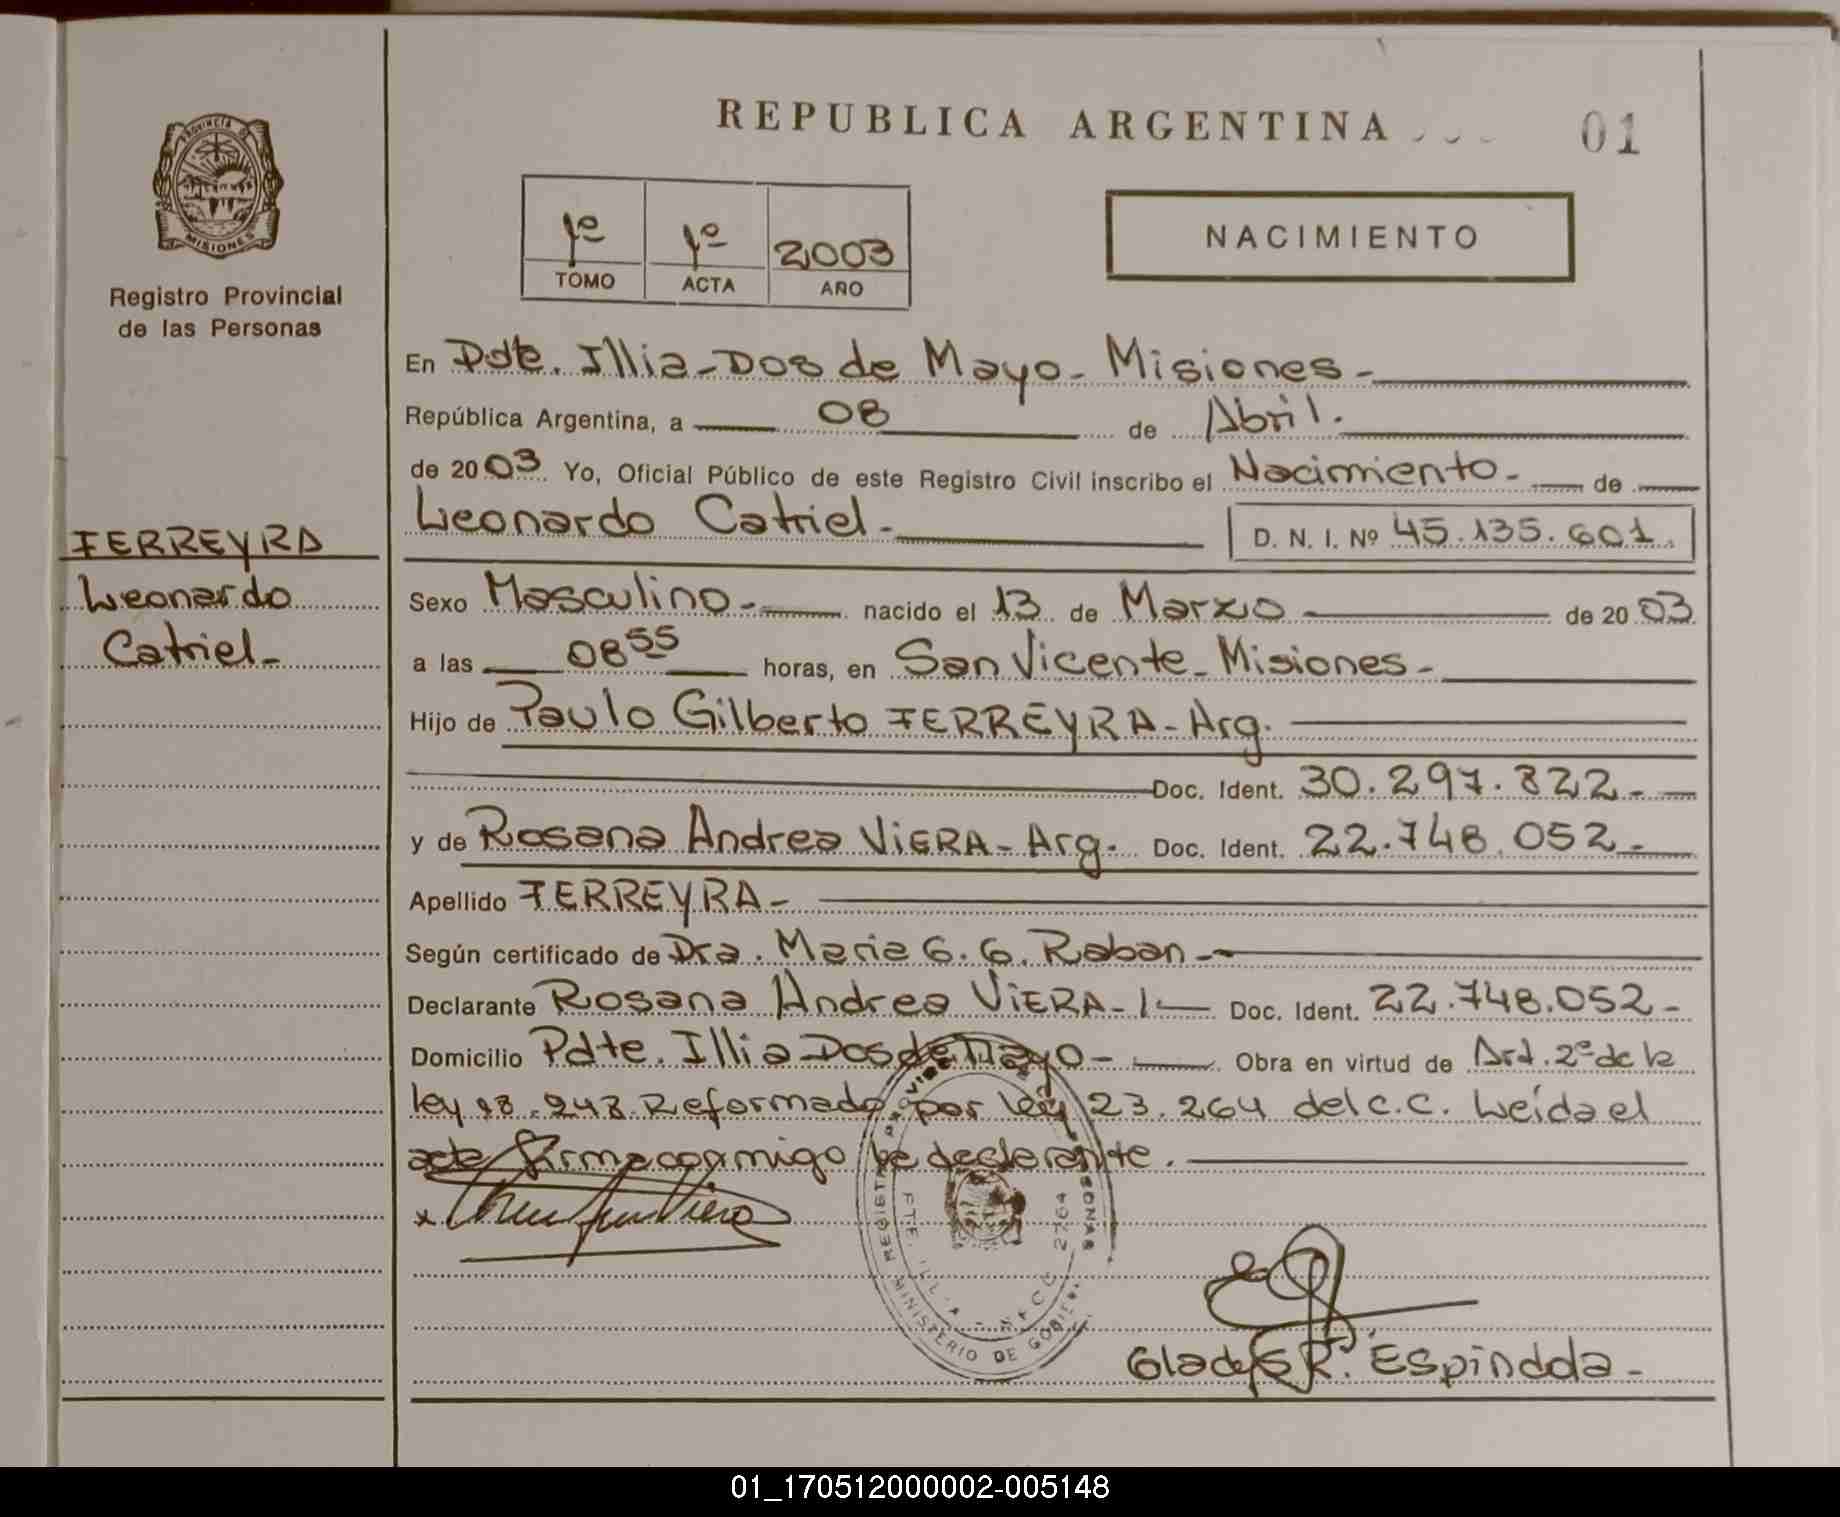 REPUBLICA ARGENTINA
01
PROVINCIA DE
MISIONES
Registro Provincial
de las Personas
1º
TOMO
1º
ACTA
2003
AÑO
NACIMIENTO
En Pdte. Illia-Dos de Mayo- Misiones-
República Argentina, a 08 de Abril.
de 2003 Yo, Oficial Público de este Registro Civil inscribo el Nacimiento- de
Leonardo Catriel-
D. N. I. Nº 45.135.601.
FERREYRA
Leonardo
Catriel-
Sexo Masculino- nacido el 13 de Marzo de 2003
a las 08 55 horas, en San Vicente- Misiones-
Hijo de Paulo Gilberto FERREYRA- Arg.
Doc. Ident. 30.297.822-
y de Rosana Andrea VIERA- Arg. Doc. Ident. 22.748.052-
Apellido FERREYRA-
Según certificado de Dra. Maria G. G. Raban-
Declarante Rosana Andrea VIERA- Doc. Ident. 22.748.052-
Domicilio Pdte. Illia Dos de Mayo- Obra en virtud de Art. 2º de la
ley 18.248 Reformado por ley 23.264 del c.c. Leída el
acta firma conmigo la declarante.
Gladys R. Espindola-
MINISTERIO DE GOBIERNO
2764
01_170512000002-005148